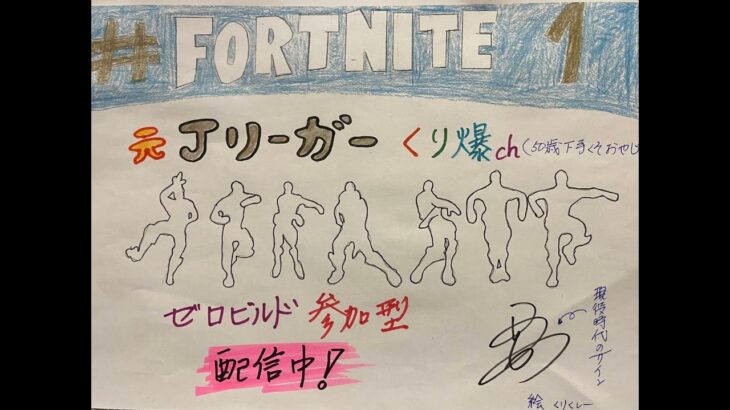 #FORTNITE 1
元Jリーガー くり爆ch(50歳下手くそおやじ
ゼロビルド 参加型
配信中!
現役時代のサイン
絵 くりくしー